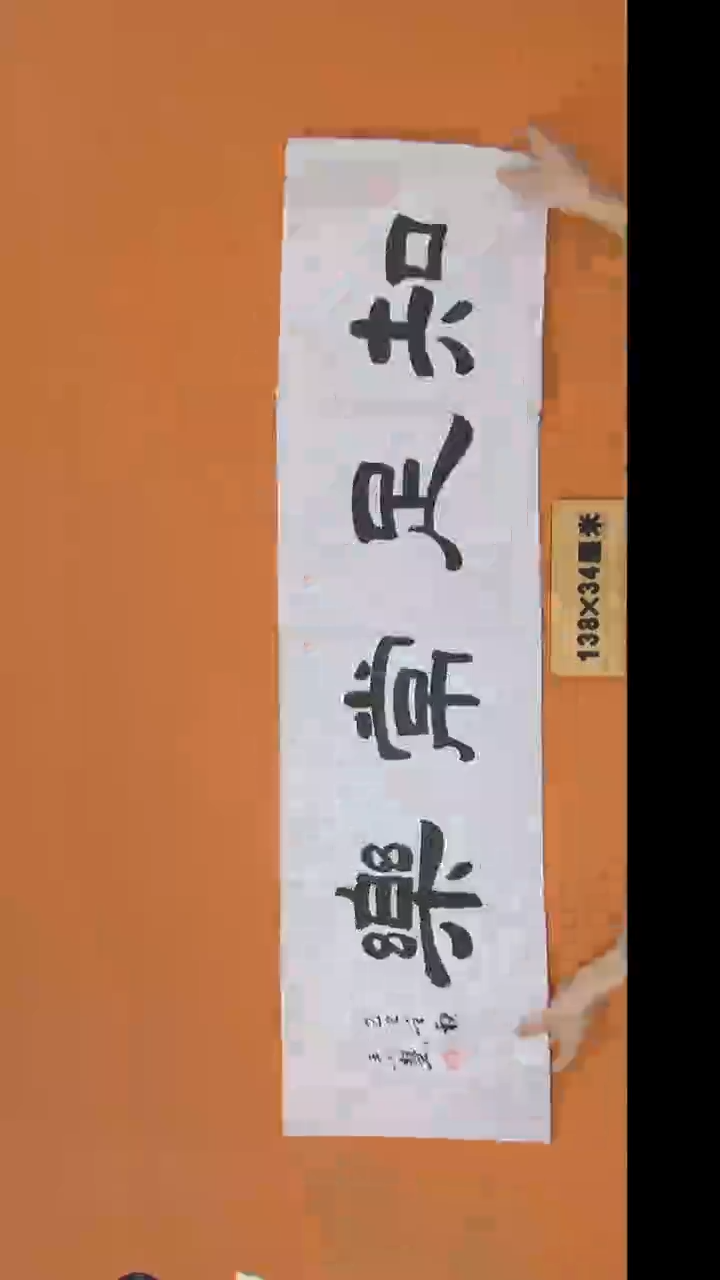 知足常樂
138×34厘米